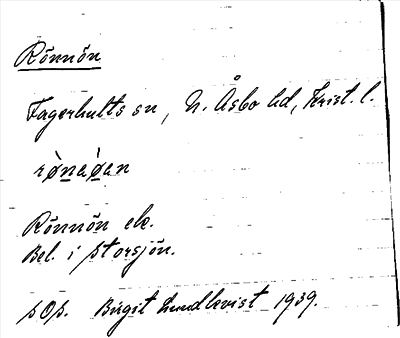 Rönnön
Fagerhults sn, N. Åsbo hd, Krist. l.
rø̀naø̀an
Rönnön ek.
Bel. i Storsjön.
SOS. Birgit Lundkvist 1939.